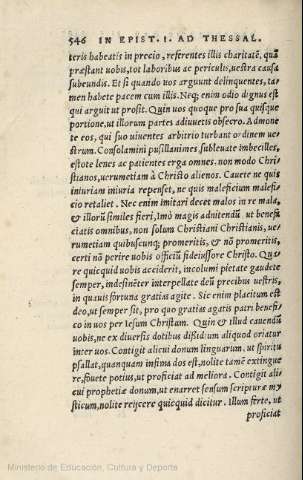 546 IN EPIST. I. AD THESSAL.
teris habeatis in precio, referentes illis charitatē, quā
præstant uobis, tot laboribus ac periculis, uestra causa
subeundis. Et si quando uos arguunt delinquentes, ta-
men habete pacem cum illis. Neq; enim odio dignus est
qui arguit ut prosit. Quin uos quoque pro sua quisque
portione, ut illorum partes adiuuetis obsecro. Admone
te eos, qui suo uiuentes arbitrio turbant ordinem ue-
strum. Consolamini pusillanimes subleuate imbecilles,
estote lenes ac patientes erga omnes. non modo Chri-
stianos, uerumetiam à Christo alienos. Cauete ne quis
iniuriam iniuria repenset, ne quis maleficium malefi-
cio retaliet. Nec enim imitari decet malos in re mala,
& illorū similes fieri, imò magis adnitendū ut benefi
ciatis omnibus, non solum Christiani Christianis, ue-
rumetiam quibuscunq; promeritis, & nō promeritis,
certi nō perire uobis officiū fideiussore Christo. Qua-
re quicquid uobis acciderit, incolumi pietate gaudete
semper, indesinēter interpellate deū precibus uestris,
in quauis fortuna gratias agite. Sic enim placitum est
deo, ut semper sit, pro quo gratias agatis patri benefi-
co in uos per Iesum Christum. Quin & illud cauendū
uobis, ne ex diuersis dotibus dißidium aliquod oriatur
inter uos. Contigit alicui donum linguarum, ut spiritu
psallat, quanquam infima dos est, nolite tamē extingue
re, fouete potius, ut proficiat ad meliora. Contigit ali-
cui prophetiæ donum, ut enarret sensum scripturæ my
sticum, nolite reijcere quicquid dicitur. Illum ferte, ut
proficiat
Ministerio de Educación, Cultura y Deporte